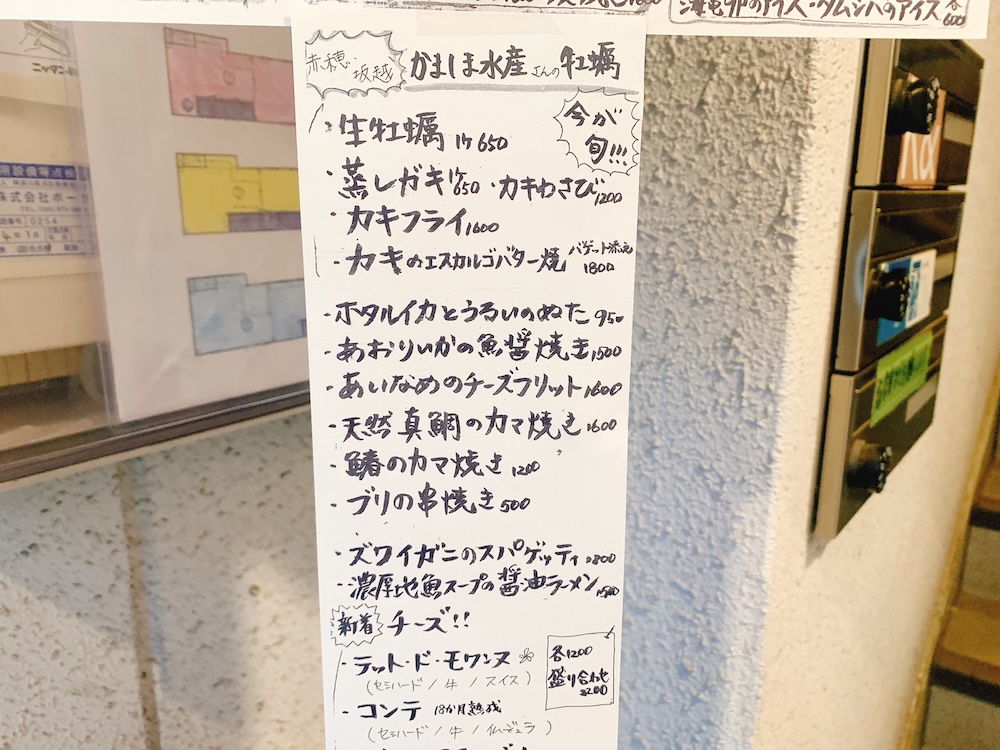 海亀卵のアイス・タムシバのアイス 各600
赤穂・坂越 かましま水産さんの牡蠣
今が旬!!!
・生牡蠣 1ケ650
・蒸しガキ 1ケ650 ・カキわさび 1200
・カキフライ 1600
・カキのエスカルゴバター焼 バゲット添え 1800
・ホタルイカとうるいのぬた 950
・あおりいかの魚醤焼き 1500
・あいなめのチーズフリット 1600
・天然真鯛のカマ焼き 1600
・鰆のカマ焼き 1200
・ブリの串焼き 500
・ズワイガニのスパゲッティ 1800
・濃厚地魚スープの醤油ラーメン 1500
新着 チーズ!!
・テット・ド・モワンヌ
(セミハード / 牛 / スイス)
各1200
盛り合わせ 2200
・コンテ 18か月熟成
(セミハード / 牛 / 仏・ジュラ)
株式会社ホー
0254